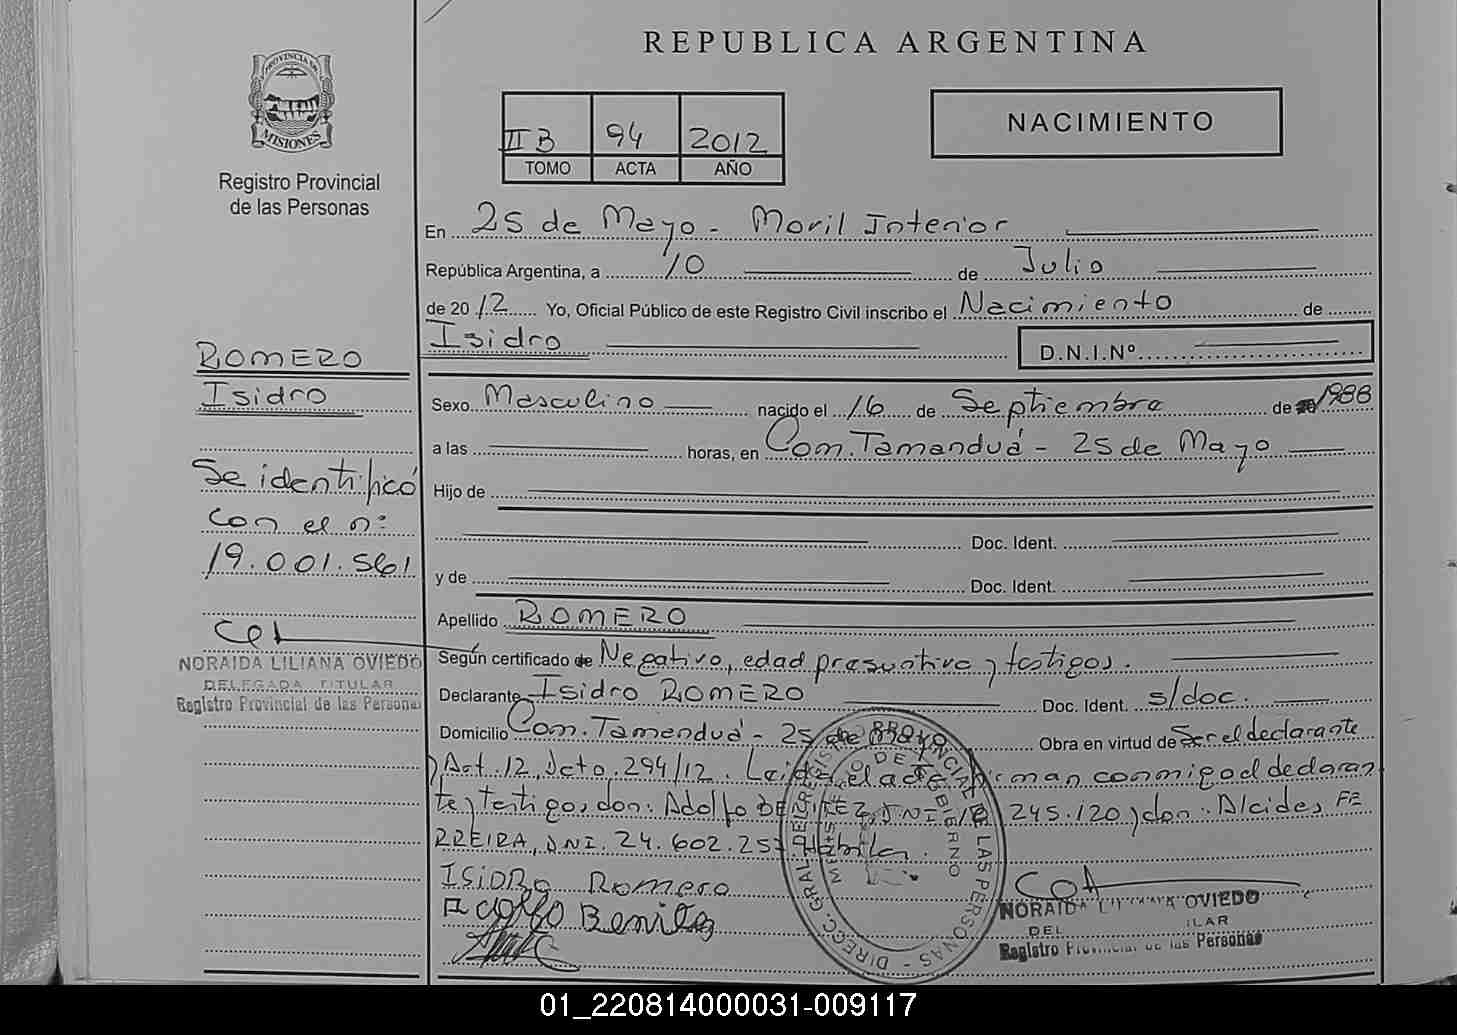 REPUBLICA ARGENTINA
PROVINCIA DE
MISIONES
Registro Provincial
de las Personas
II B 94 2012
TOMO ACTA AÑO
NACIMIENTO
En 25 de Mayo - Movil Interior
República Argentina, a 10 de Julio
de 2012 Yo, Oficial Público de este Registro Civil inscribo el Nacimiento de
Isidro
D.N.I.Nº
ROMERO
Isidro
Se identificó
con el nº
19.001.561
NORAIDA LILIANA OVIEDO
DELEGADA TITULAR
Registro Provincial de las Personas
Sexo Masculino nacido el 16 de Septiembre de 1988
a las horas, en Com. Tamanduá - 25 de Mayo
Hijo de
Doc. Ident.
y de Doc. Ident.
Apellido ROMERO
Según certificado de Negativo, edad presuntiva y testigos.
Declarante Isidro ROMERO Doc. Ident. s/doc.
Domicilio Com. Tamanduá - 25 de Mayo Obra en virtud de Ser el declarante
y Art. 12, Dcto. 294/12. Leida el acta firman conmigo el declaran
te y testigos don: Adolfo BENITEZ, DNI. 245.120 y don. Alcides FE
RREIRA, DNI. 24.602.257 Hábiles.
ISIDRO Romero
Adolfo Benitez
DIRECC. GRAL. DEL REGISTRO PROVINCIAL DE LAS PERSONAS
MINISTERIO DE GOBIERNO
NORAIDA LILIANA OVIEDO
Registro Provincial de las Personas
01_220814000031-009117